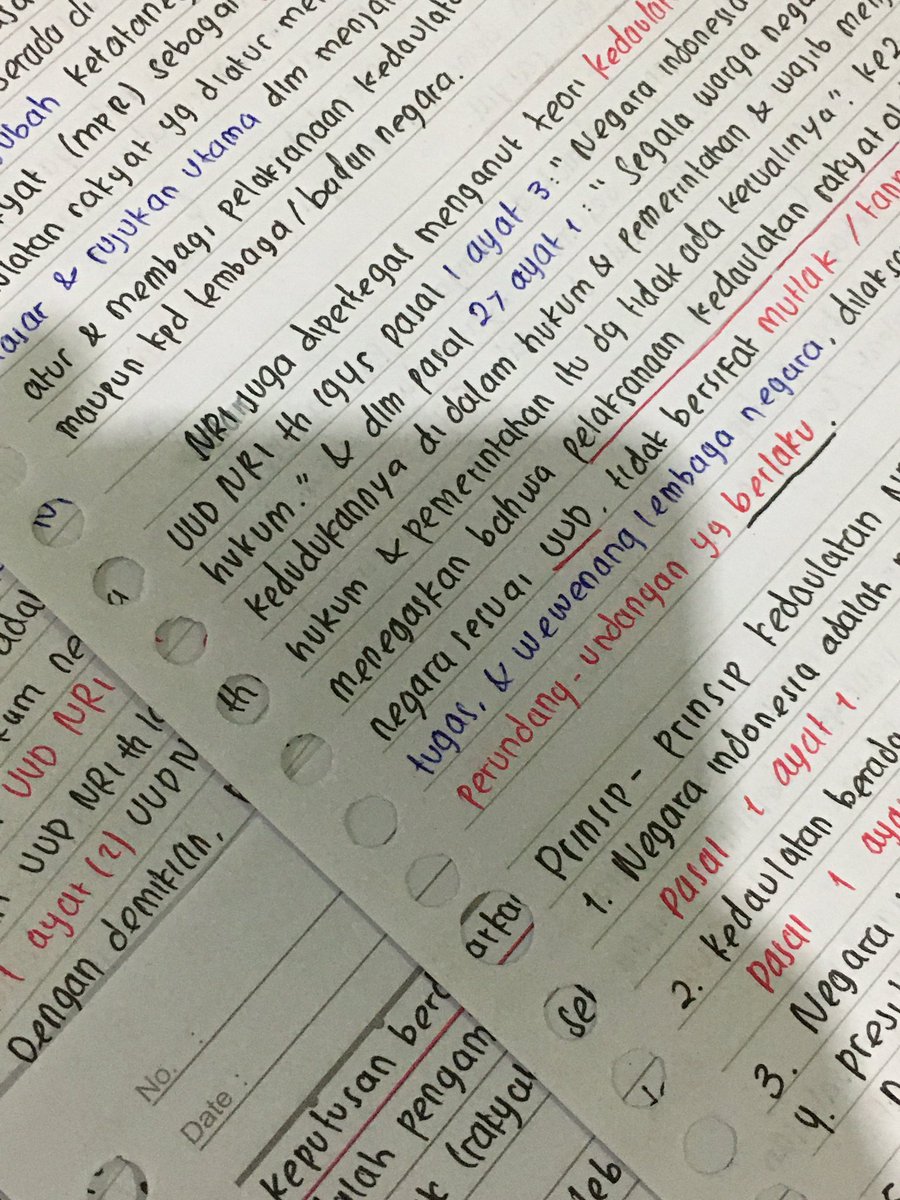 berada di
ubah ketatane
yat (MPR) sebagai
ulatan rakyat yg diatur me
asar & rujukan utama dlm menja
atur & membagi pelaksanaan kedaulata
maupun kpd lembaga / badan negara.
NRI juga dipertegas menganut teori kedaulat
UUD NRI th 1945 pasal 1 ayat 3 : " Negara indonesia
hukum." & dlm pasal 27 ayat 1 : " Segala warga nega
kedudukannya di dalam hukum & pemerintahan & wajib men
hukum & pemerintahan itu dg tidak ada kecualinya". ke2
menegaskan bahwa pelaksanaan kedaulatan rakyat ol
negara sesuai UUD, tidak bersifat mutlak / tanp
tugas, & wewenang lembaga negara, dilaks
perundang-undangan yg berlaku.
Prinsip - Prinsip kedaulatan N
1. Negara indonesia adalah
Pasal 1 ayat 1.
2. kedaulatan berada
Pasal 1 aya
3. Negara
4. presi
th
arkan
Sel
adal
kum ne
UUD NRI
UUD NRI th
1 ayat (2) UUD N
Dengan demikian,
No. :
Date :
keputusan berd
alah pengam
k (rakyat